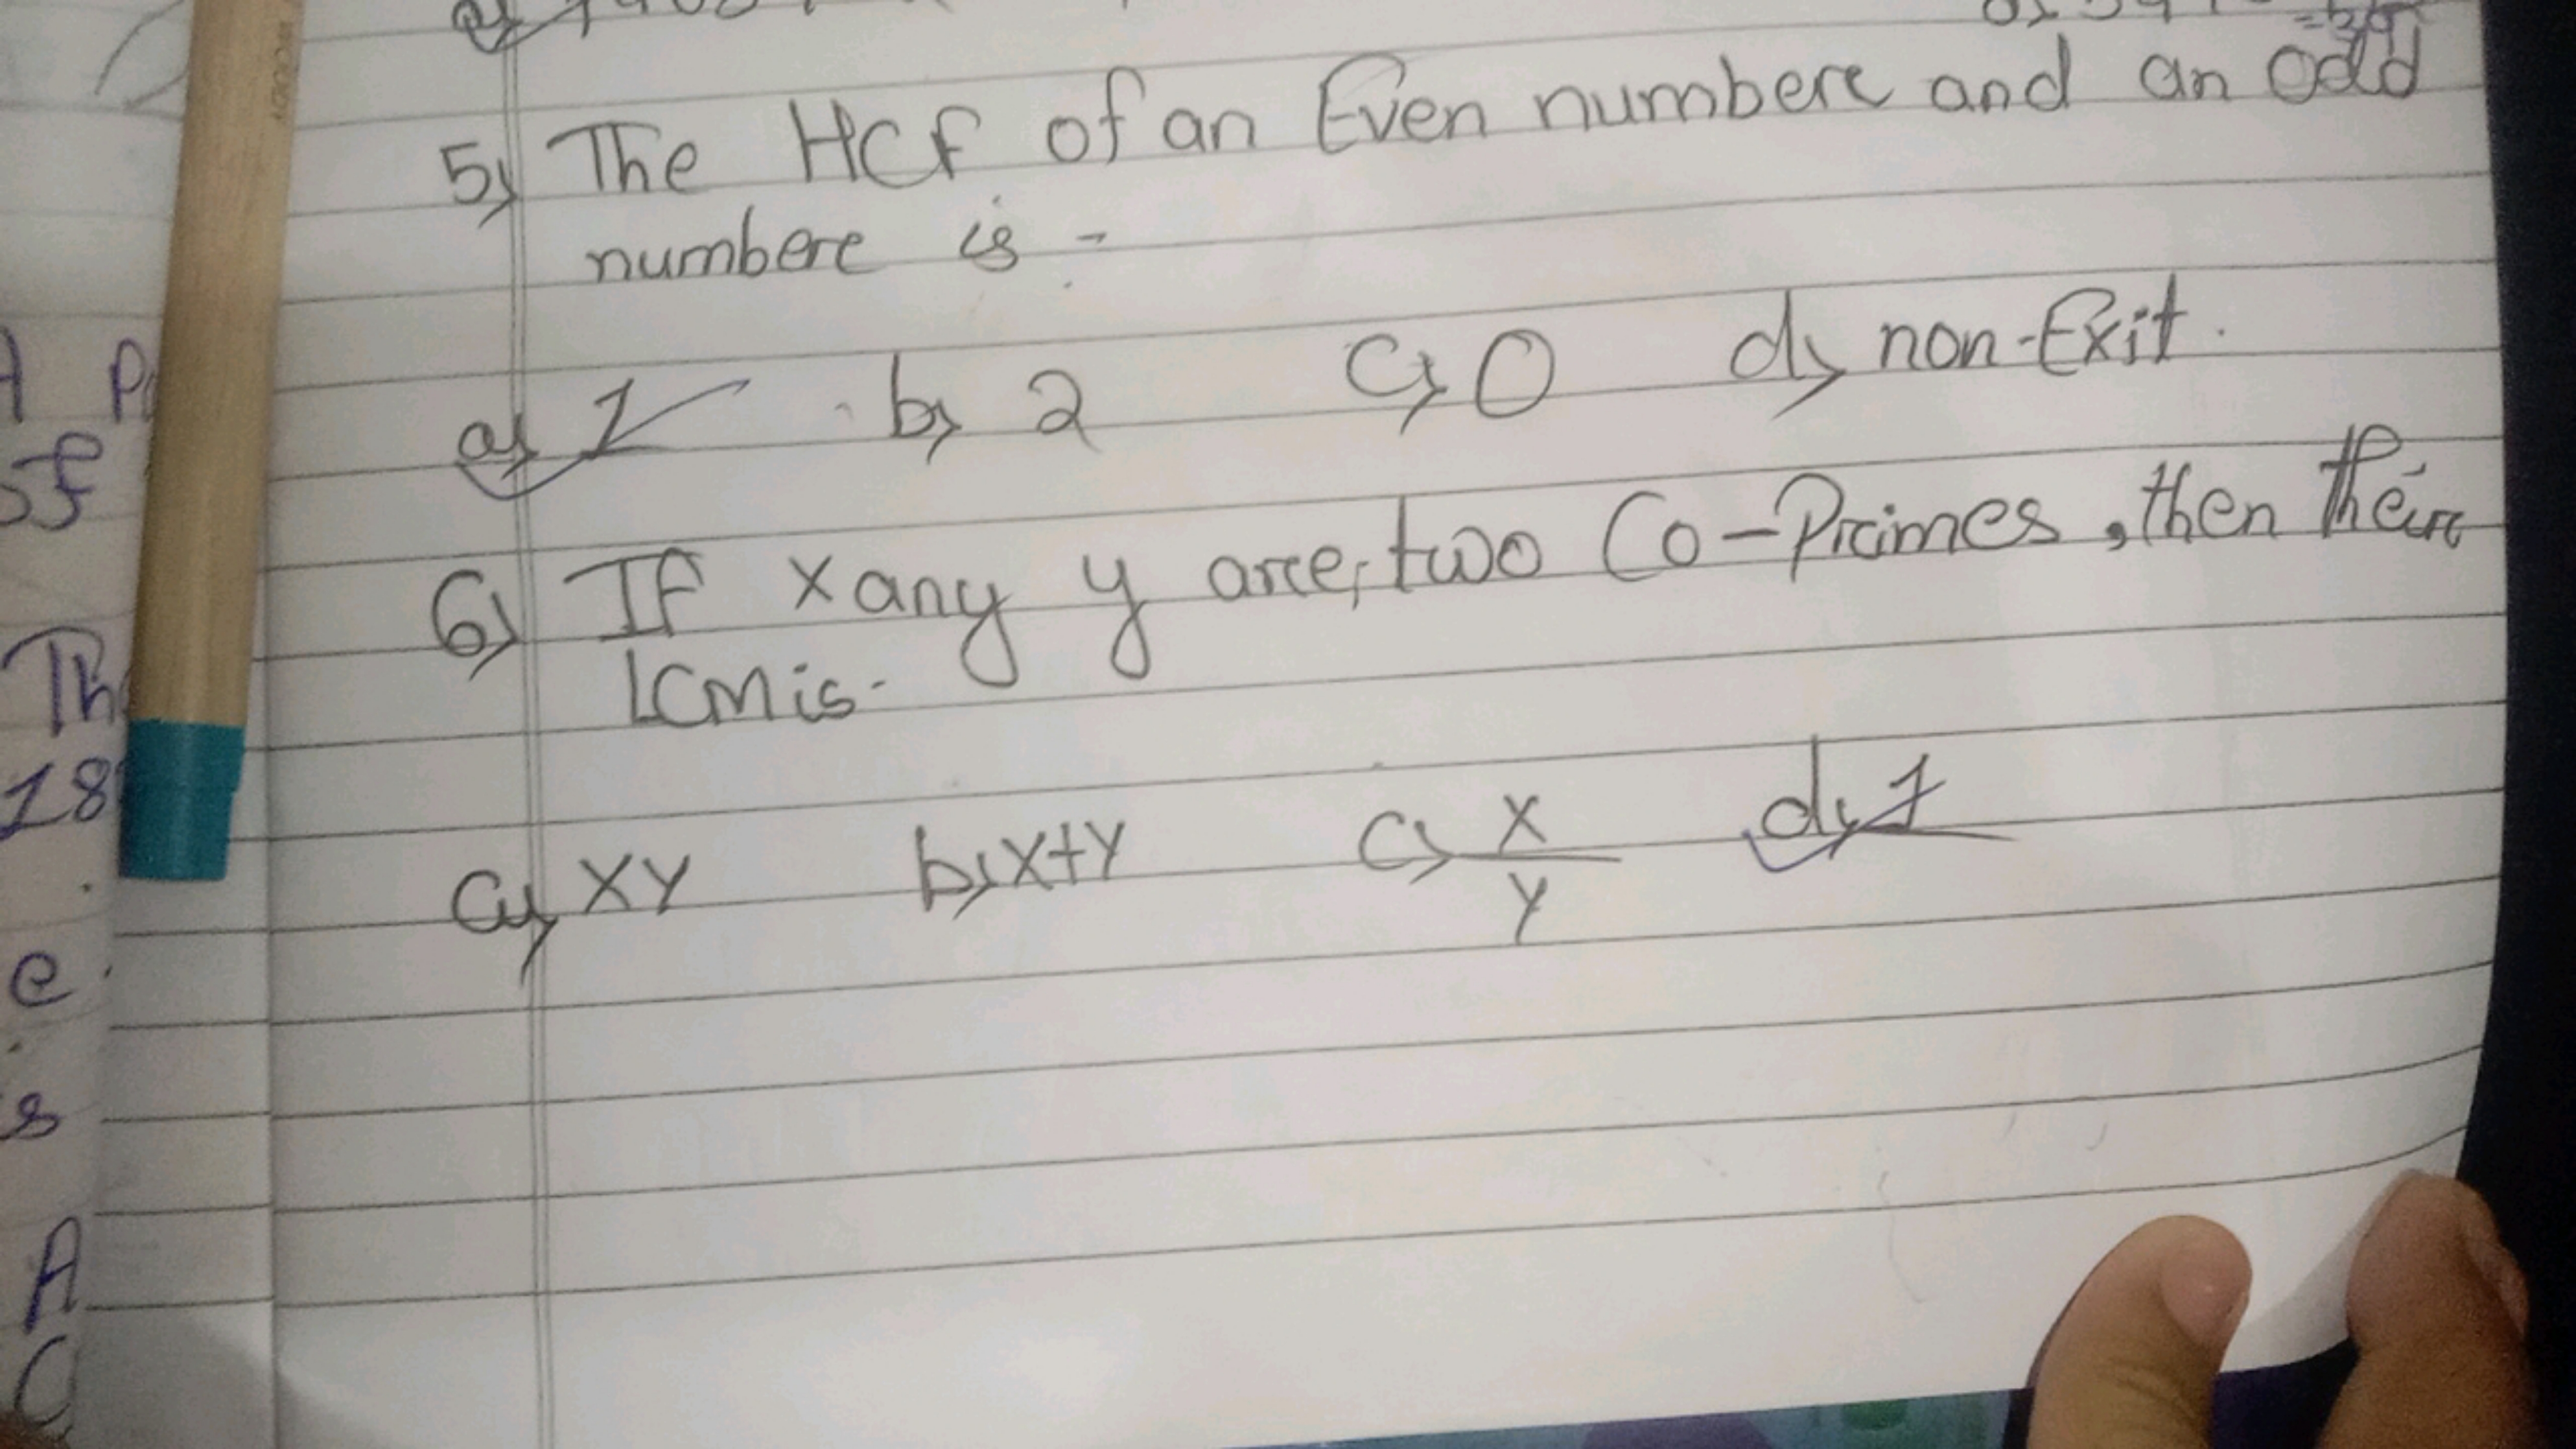 5) The HCF of an Even numbere and an odd
numbere is -
a) 1 b) 2 c) 0 d) non-Exit.
6) If x any y are, two Co-Primes, then their
LCM is.
a) XY b) X+Y c) X/Y d) 1
A P
sf
Th
18
e
s
A
C